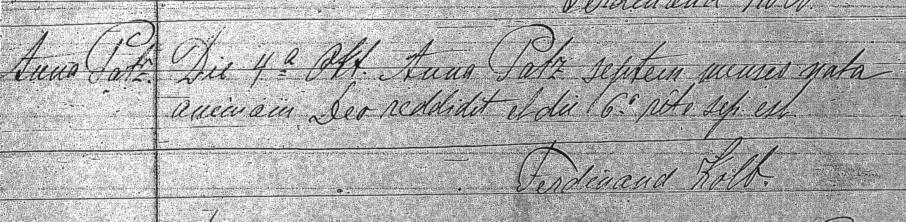 Ferdinand Kolb.
Anna Patz. Die 4ª Okt. Anna Patz septem menses nata
animam Deo reddidit et die 6ª rite sep. est.
Ferdinand Kolb.